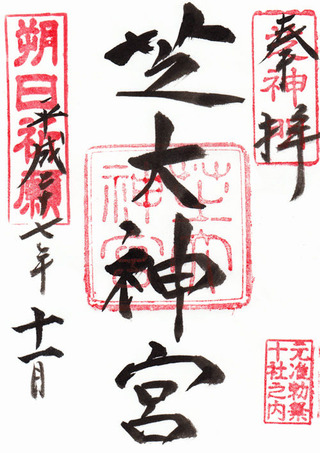 奉拝
芝大神宮
朔日祈願
平成二十七年十一月
元准勅祭
十社之内